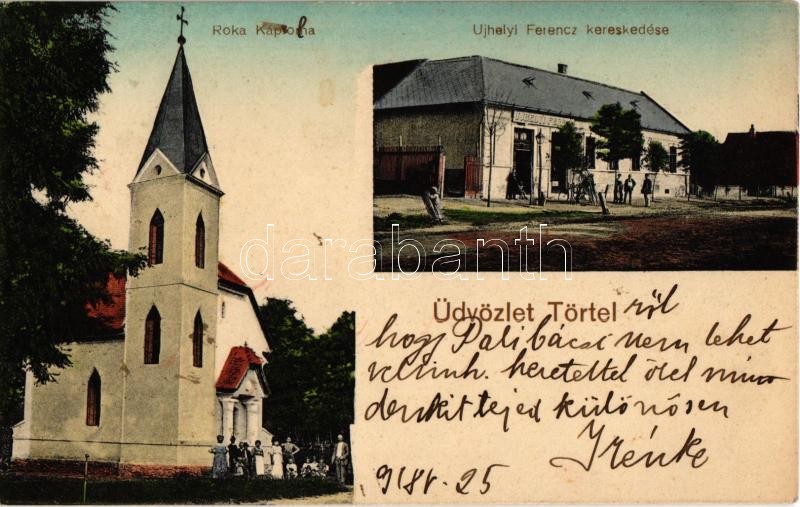 Roka Káptolna
Ujhelyi Ferencz kereskedése
UJHELYI FER
Üdvözlet Törtel ről
hogy Pali bácsi nem lehet
velünk. szeretettel ölel min
denkit tejed különösen
Irénke
918 V. 25
darabanth